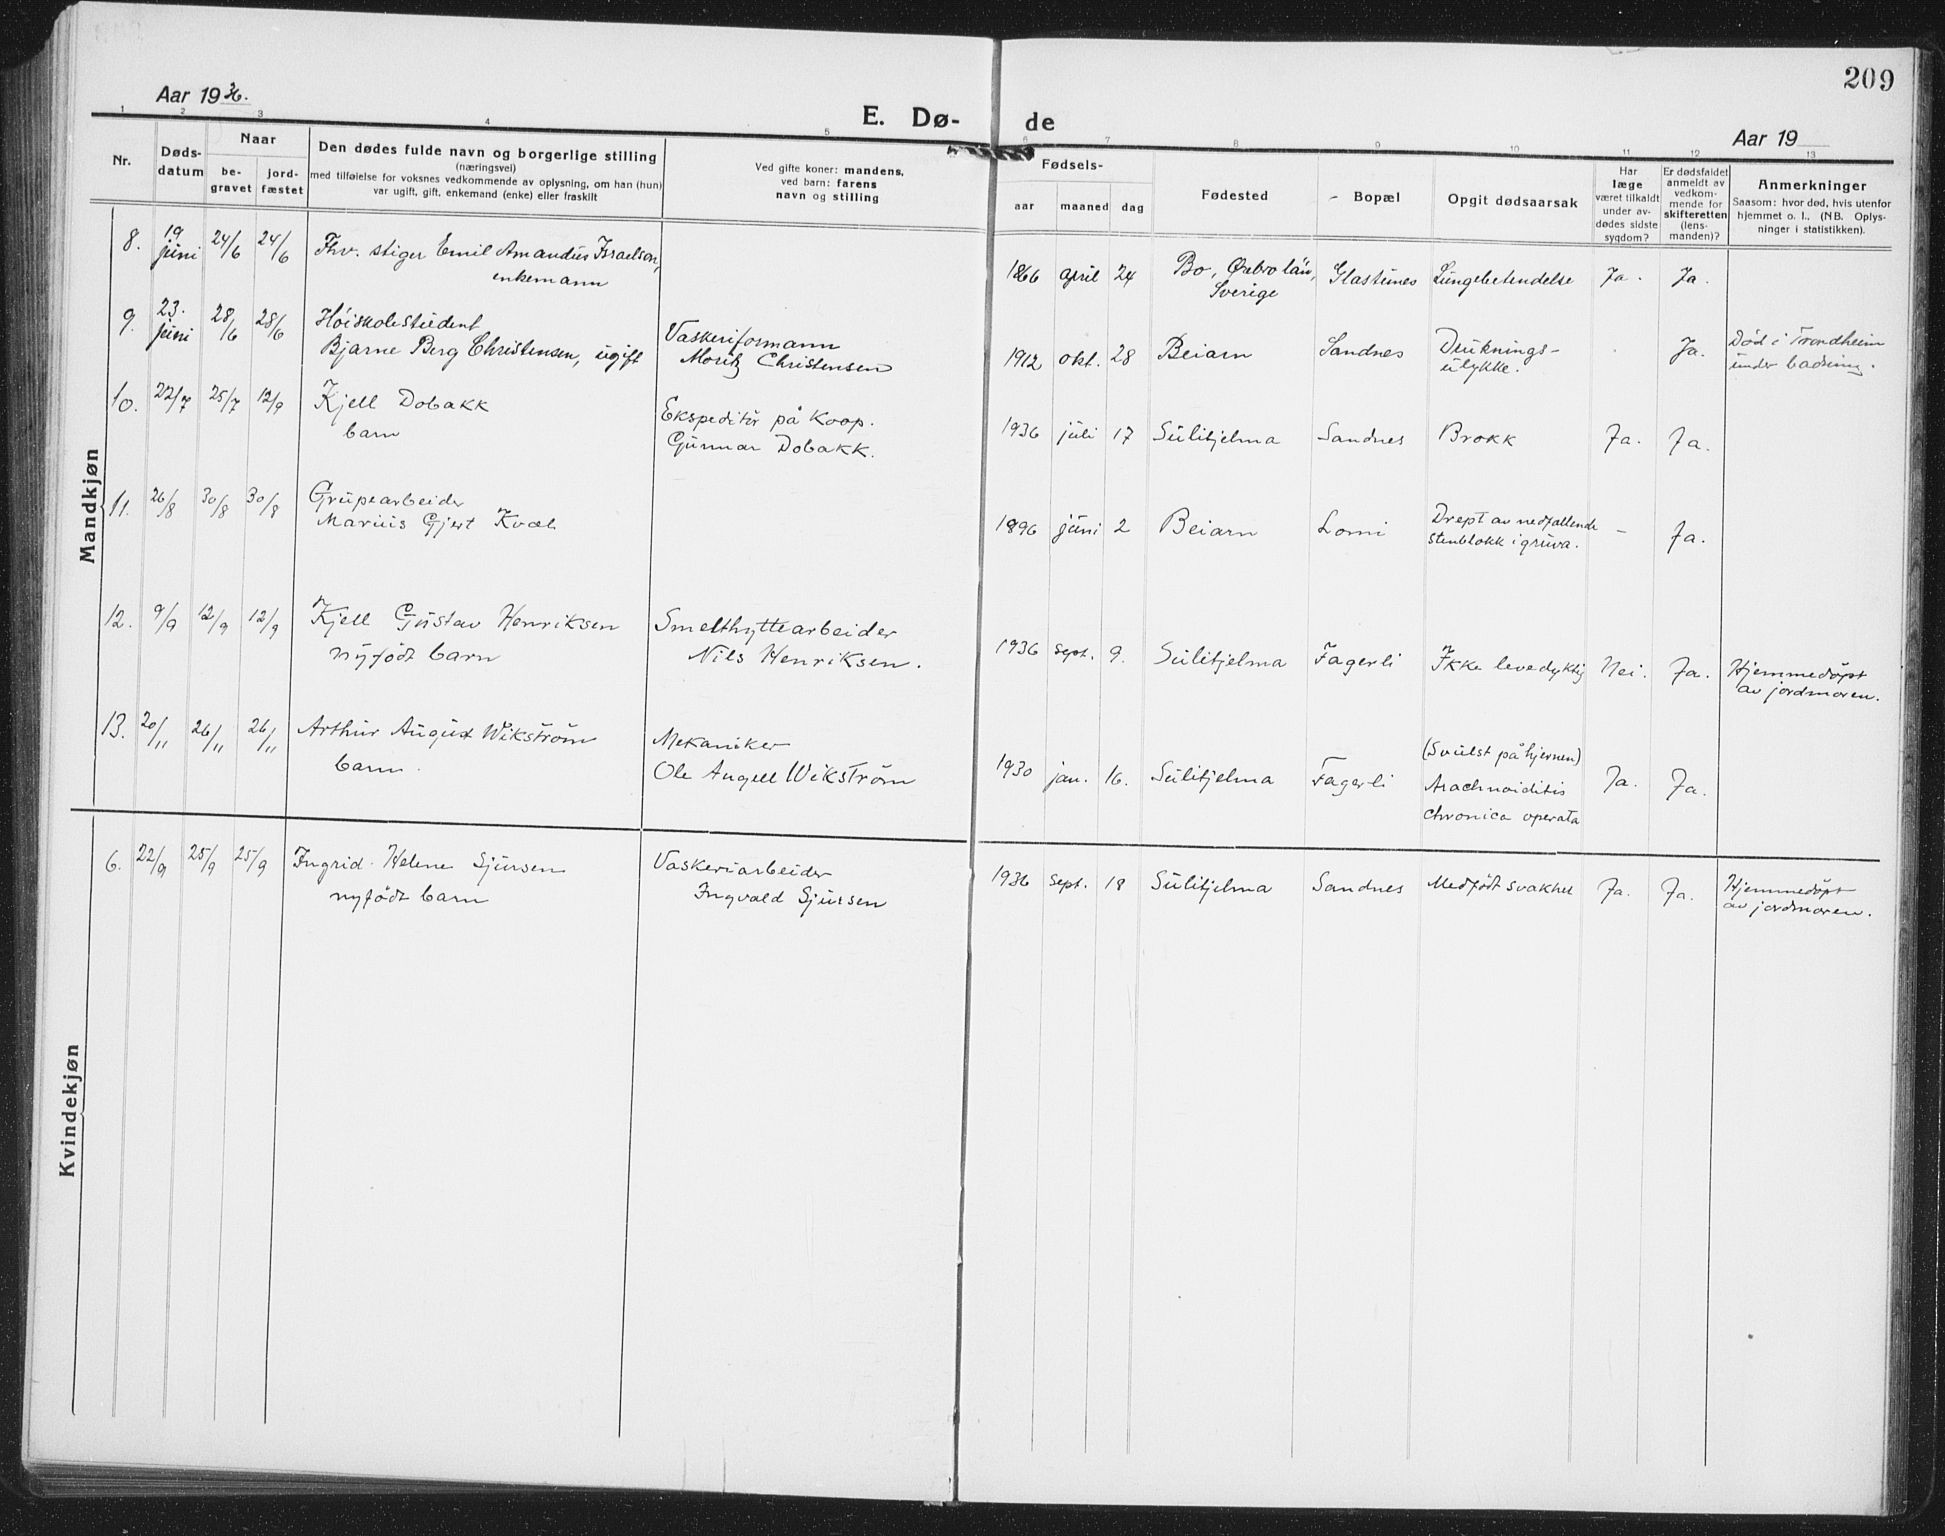 209
Aar 1936.
E. Dø-
de
Aar 19
1 2 3 4 5 6 7 8 9 10 11 12 13
Nr.
Døds-
datum
Naar
be-
gravet
jord-
fæstet
Den dødes fulde navn og borgerlige stilling
(næringsvei)
med tilføielse for voksnes vedkommende av oplysning, om han (hun)
var ugift, gift, enkemand (enke) eller fraskilt
Ved gifte koner: mandens,
ved barn: farens
navn og stilling
Fødsels-
aar maaned dag
Fødested
Bopæl
Opgit dødsaarsak
Har
læge
været tilkaldt
under av-
dødes sidste
sygdom?
Er dødsfaldet
anmeldt av
vedkom-
mende for
skifteretten
(lens-
manden)?
Anmerkninger
Saasom: hvor død, hvis utenfor
hjemmet o. l., (NB. Oplys-
ninger i statistikken).
Mandkjøn
8. 19 juni 24/6 24/6 Fhv. stiger Emil Amandus Israelson, enkemann 1866 april 24 Bo, Örebro län, Sverige Glastunes Lungebetendelse Ja. Ja.
9. 23. juni 28/6 28/6 Höiskolestudent
Bjarne Berg Christensen, ugift Vaskeriformann Moritz Christensen 1912 okt. 28 Beiarn Sandnes Druknings-ulykke. Ja. Död i Trondheim under badning.
10. 22/7 25/7 12/9 Kjell Dobakk
barn Ekspeditör på Koop. Gunnar Dobakk. 1936 juli 17 Sulitjelma Sandnes Brokk Ja. Ja.
11. 26/8 30/8 30/8 Grubearbeider
Marius Gjert Kvæl 1896 juni 2 Beiarn Lomi Drept av nedfallende stenblokk i gruva. - Ja.
12. 9/9 12/9 12/9 Kjell Gustav Henriksen
nyfödt barn Smelthyttearbeider Nils Henriksen. 1936 sept. 9. Sulitjelma Fagerli Ikke levedyktig Nei. Ja. Hjemmedöpt av jordmoren.
13. 20/11 26/11 26/11 Arthur August Wikström
barn. Mekaniker Ole Angell Wikström 1930 jan. 16. Sulitjelma Fagerli (Svulst på hjernen) Arachnoiditis chronica operata Ja. Ja.
Kvindekjøn
6. 22/9 25/9 25/9 Ingrid Helene Sjursen
nyfödt barn Vaskeriarbeider Ingvald Sjursen 1936 sept. 18 Sulitjelma Sandnes Medfödt svakhet Ja. Ja. Hjemmedöpt av jordmoren.